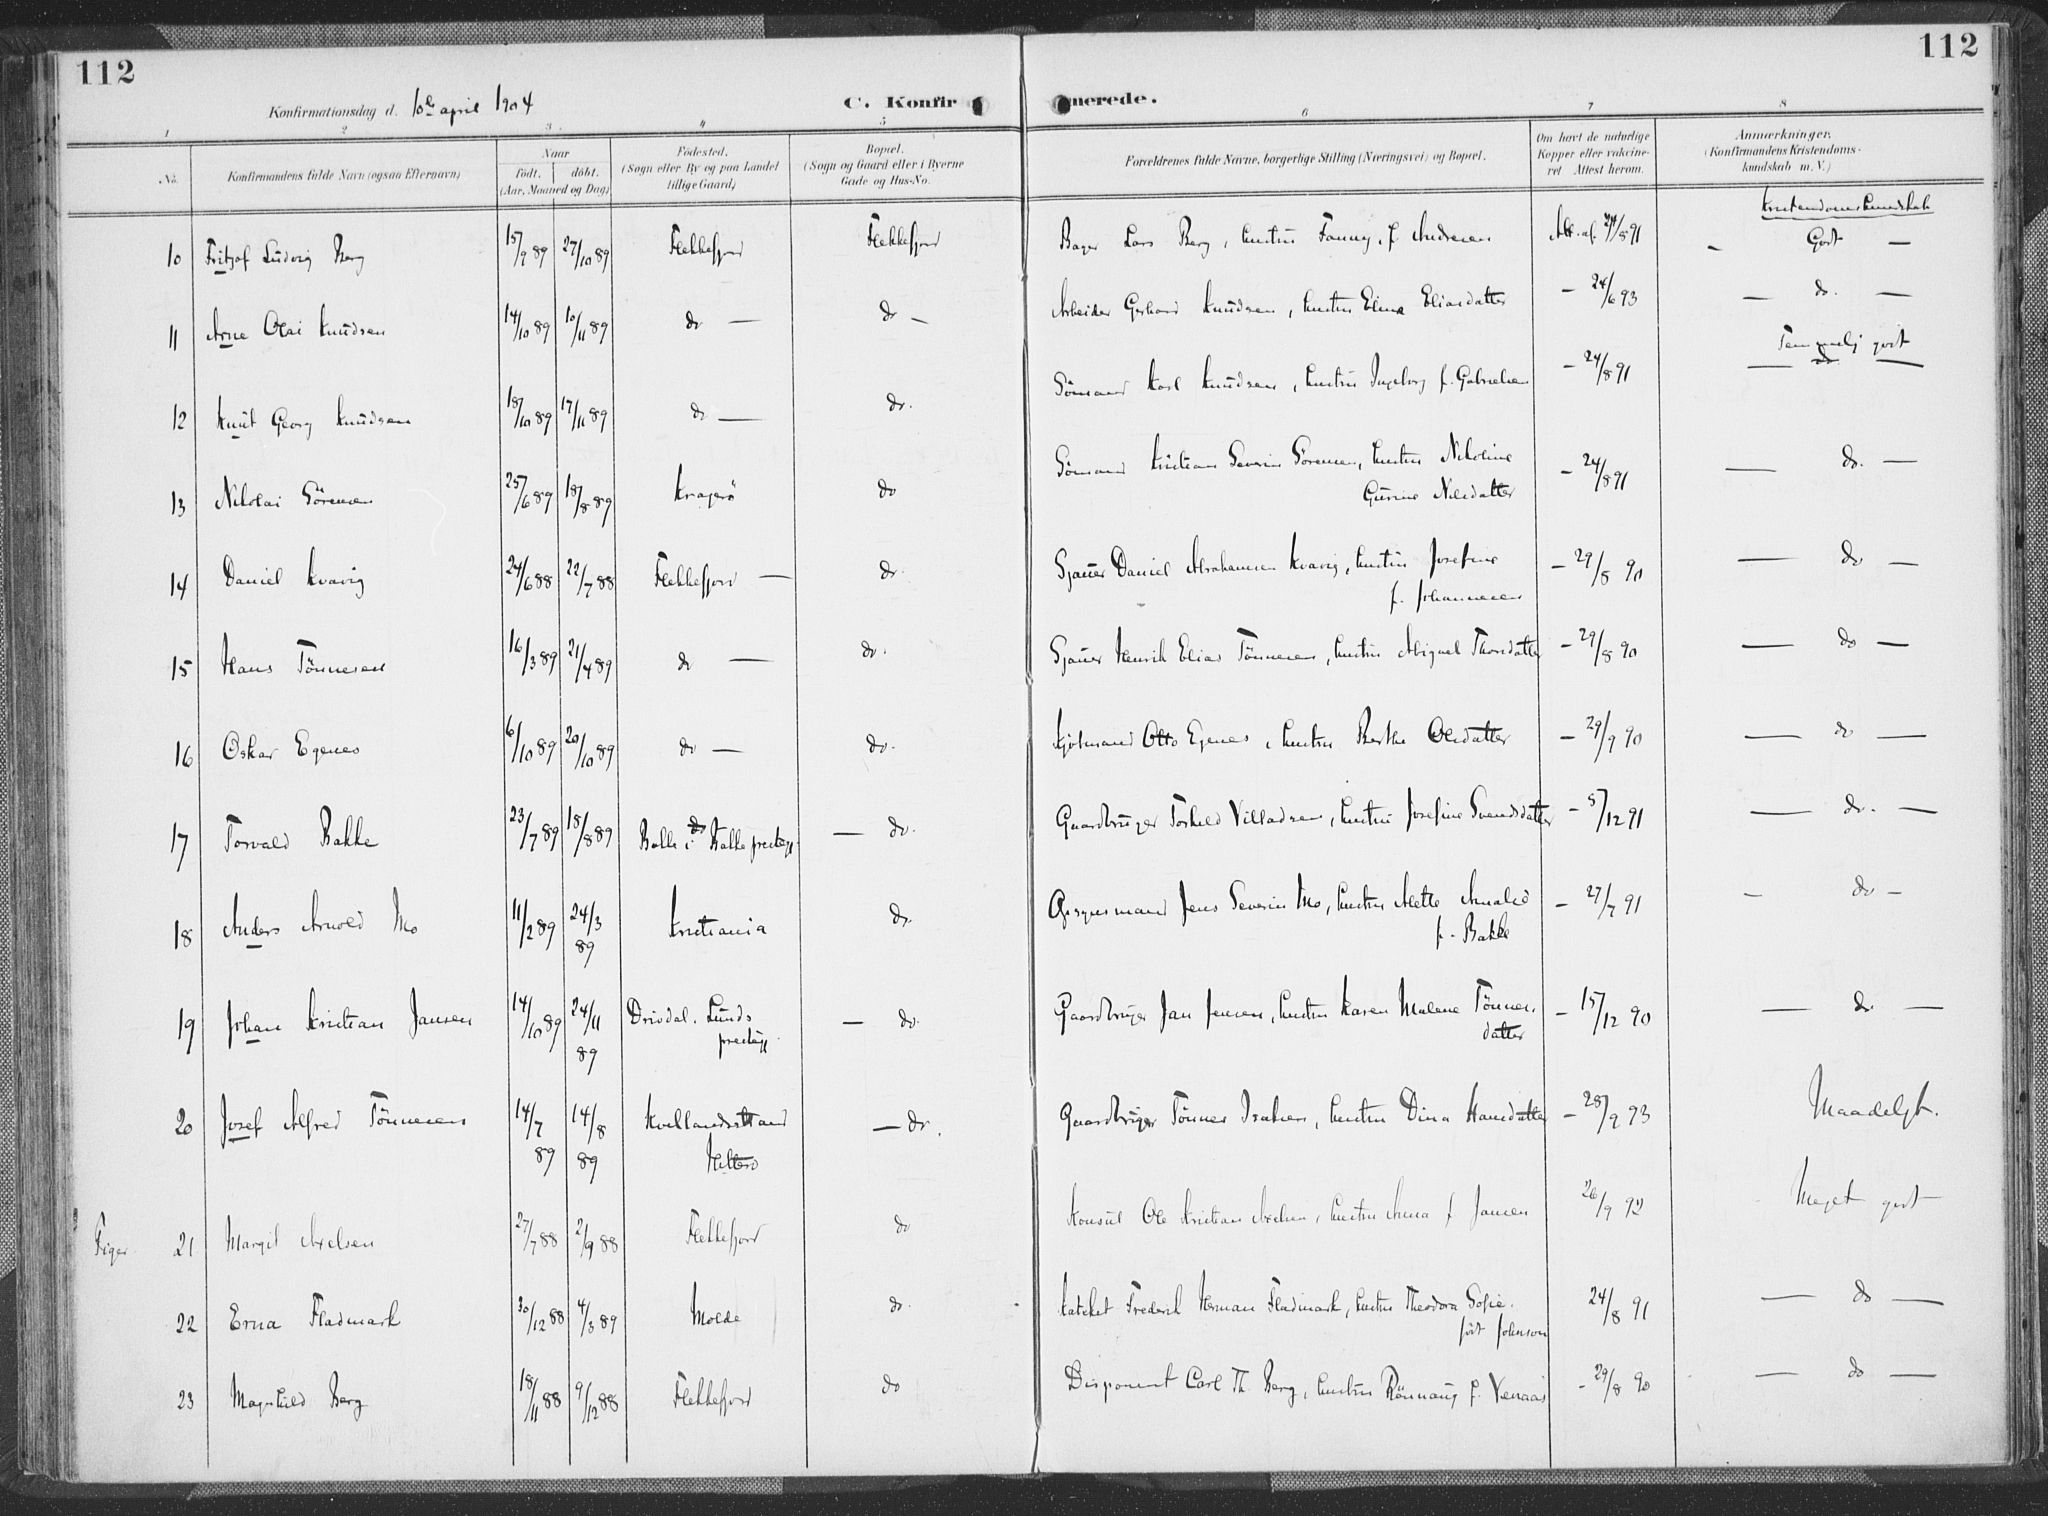 112
112
Konfirmationsdag d. 10de april 1904
C. Konfirmerede.
1 2 3 4 5 6 7 8
No.
Konfirmandens fulde Navn (ogsaa Efternavn)
Naar
født. døbt.
(Aar, Maaned og Dag)
Fødested.
(Sogn eller By og paa Landet
tillige Gaard)
Bopæl.
(Sogn og Gaard eller i Byerne
Gade og Hus-No.
Forældrenes fulde Navne, borgerlige Stilling (Næringsvei) og Bopæl.
Om havt de naturlige
Kopper eller vakcine-
ret Attest herom.
Anmærkninger.
(Konfirmandens Kristendoms-
kundskab m. V.)
Kristendomskundskab
10 Fritjof Ludvig Berg 15/9 89 27/10 89 Flekkefjord Flekkefjord Bager Lars Berg, hustru Fanny, f. Andresen Att. af. 24/8 91 — Godt —
11 Arne Olai Knudsen 14/10 89 10/11 89 do — do — Arbeider Gerhard Knudsen, hustru Elina Eliasdatter — 24/6 93 — do. —
12 Knut Georg Knudsen 18/10 89 17/11 89 do — do. Sömand Karl Knudsen, hustru Ingeborg f. Gabrielsen — 24/8 91 Temmelig godt
— do —
13 Nikolai Sörensen 25/6 89 18/8 89 Kragerö do Sömand Kristian Severin Sörensen, hustru Nikoline
Gurine Nilsdatter — 24/8 91 — do. —
14 Daniel Kvavig 24/6 88 22/7 88 Flekkefjord — do. Sjauer Daniel Abrahamsen Kvavig, hustru Josefine
f. Johannesen — 29/8 90 — do —
15 Hans Tönnesen 16/3 89 21/4 89 do — do. Sjauer Henrik Elias Tönnesen, hustru Abigael Thorsdatter — 29/8 90 — do —
16 Oskar Egenes 6/10 89 20/10 89 do — do. Kjöbmand Otto Egenes, hustru Berthe Olesdatter — 29/9 90 — do —
17 Torvald Bakke 23/7 89 18/8 89 Bakke i Bakke prestegj. — do. Gaardbruger Torkild Villadsen, hustru Josefine Svendsdatter — 5/12 91 — do. —
18 Anders Arnold Mo 11/2 89 24/3 89 Kristiania do. Jens Severin Mo, hustru Alette Amalie
f. Bakke — 27/7 91 — do —
19 Johan Kristian Jansen 14/10 89 24/11 89 Drivdal. Lunds
prestegj. — do. Gaardbruger Jan Jensen, hustru Karen Malene Tönnes-
datter — 15/12 90 — do. —
20 Josef Alfred Tönnesen 14/7 89 14/8 89 Kvellandsstrand
Hitterö — do. Gaardbruger Tönnes Isaksen, hustru Dina Hansdatter — 28/9 93 Maadeligt.
Piger
21 Margit Axelsen 27/7 88 2/9 88 Flekkefjord do Konsul Ole Kristian Axelsen, hustru Anna f. Jansen 26/9 92 Meget godt
22 Erna Fladmark 30/12 88 4/3 89 Molde do. Kateket Frederik Herman Fladmark, hustru Theodora Sofie.
födt Johnson 24/8 91 — do —
23 Magnhild Berg 18/11 88 9/12 88 Flekkefjord do Disponent Carl Th. Berg, hustru Rönnaug f. Venaas — 29/8 90 — do —